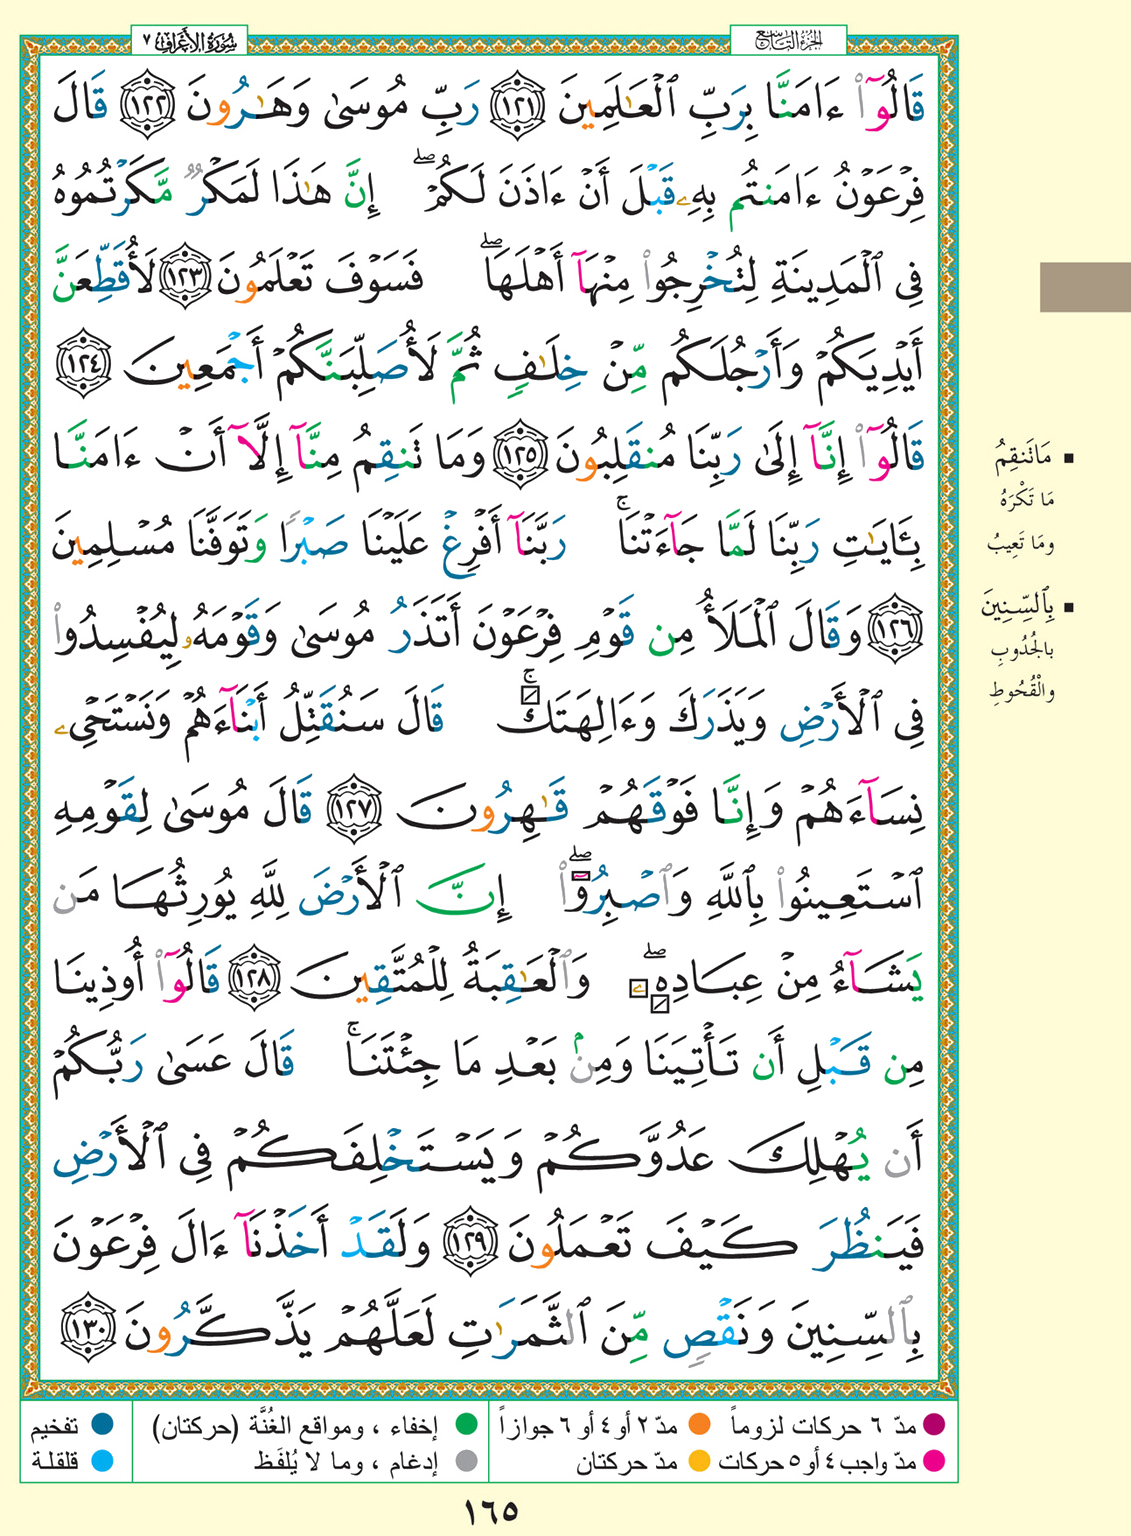 سُورَةُ الأَعْرَافِ ٧
الجُزْءُ التَّاسِعُ
قَالُوٓا۟ ءَامَنَّا بِرَبِّ ٱلْعَـٰلَمِينَ ١٢١ رَبِّ مُوسَىٰ وَهَـٰرُونَ ١٢٢ قَالَ
فِرْعَوْنُ ءَامَنتُم بِهِۦ قَبْلَ أَنْ ءَاذَنَ لَكُمْ ۖ إِنَّ هَـٰذَا لَمَكْرٌ مَّكَرْتُمُوهُ
فِى ٱلْمَدِينَةِ لِتُخْرِجُوا۟ مِنْهَآ أَهْلَهَا ۖ فَسَوْفَ تَعْلَمُونَ ١٢٣ لَأُقَطِّعَنَّ
أَيْدِيَكُمْ وَأَرْجُلَكُم مِّنْ خِلَـٰفٍ ثُمَّ لَأُصَلِّبَنَّكُمْ أَجْمَعِينَ ١٢٤
قَالُوٓا۟ إِنَّآ إِلَىٰ رَبِّنَا مُنقَلِبُونَ ١٢٥ وَمَا تَنقِمُ مِنَّآ إِلَّآ أَنْ ءَامَنَّا
بِـَٔايَـٰتِ رَبِّنَا لَمَّا جَآءَتْنَا ۚ رَبَّنَآ أَفْرِغْ عَلَيْنَا صَبْرًا وَتَوَفَّنَا مُسْلِمِينَ
١٢٦ وَقَالَ ٱلْمَلَأُ مِن قَوْمِ فِرْعَوْنَ أَتَذَرُ مُوسَىٰ وَقَوْمَهُۥ لِيُفْسِدُوا۟
فِى ٱلْأَرْضِ وَيَذَرَكَ وَءَالِهَتَكَ ۚ قَالَ سَنُقَتِّلُ أَبْنَآءَهُمْ وَنَسْتَحْىِۦ
نِسَآءَهُمْ وَإِنَّا فَوْقَهُمْ قَـٰهِرُونَ ١٢٧ قَالَ مُوسَىٰ لِقَوْمِهِ
ٱسْتَعِينُوا۟ بِٱللَّهِ وَٱصْبِرُوٓا۟ ۖ إِنَّ ٱلْأَرْضَ لِلَّهِ يُورِثُهَا مَن
يَشَآءُ مِنْ عِبَادِهِۦ ۖ وَٱلْعَـٰقِبَةُ لِلْمُتَّقِينَ ١٢٨ قَالُوٓا۟ أُوذِينَا
مِن قَبْلِ أَن تَأْتِيَنَا وَمِنۢ بَعْدِ مَا جِئْتَنَا ۚ قَالَ عَسَىٰ رَبُّكُمْ
أَن يُهْلِكَ عَدُوَّكُمْ وَيَسْتَخْلِفَكُمْ فِى ٱلْأَرْضِ
فَيَنظُرَ كَيْفَ تَعْمَلُونَ ١٢٩ وَلَقَدْ أَخَذْنَآ ءَالَ فِرْعَوْنَ
بِٱلسِّنِينَ وَنَقْصٍ مِّنَ ٱلثَّمَرَٰتِ لَعَلَّهُمْ يَذَّكَّرُونَ ١٣٠
مَا تَنقِمُ
مَا تَكْرَهُ
ومَا تَعِيبُ
بِٱلسِّنِينَ
بالجُدُوبِ
والْقُحُوطِ
مدّ ٦ حركات لزوماً مدّ ٢ أو ٤ أو ٦ جوازاً إخفاء ، ومواقع الغُنَّة (حركتان) تفخيم
مدّ واجب ٤ أو ٥ حركات مدّ حركتان إدغام ، وما لا يُلفَظ قلقلة
١٦٥